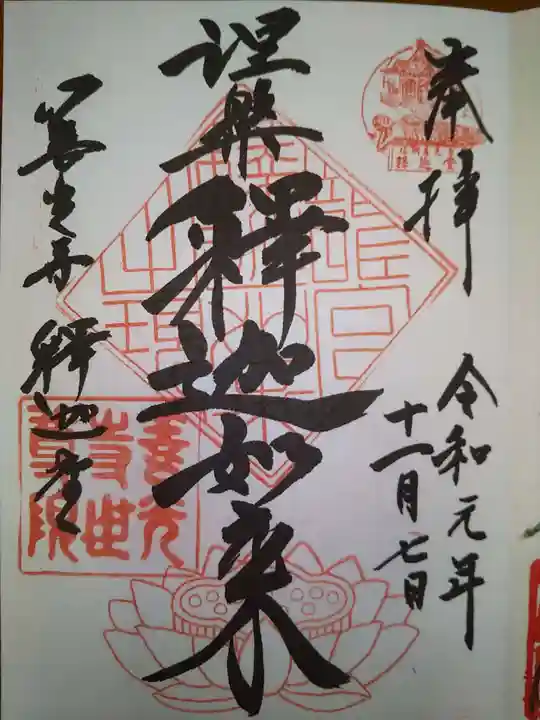 奉拝
令和元年
十一月七日
涅槃釋迦如来
善光寺釋迦堂
善光
寺世
尊院